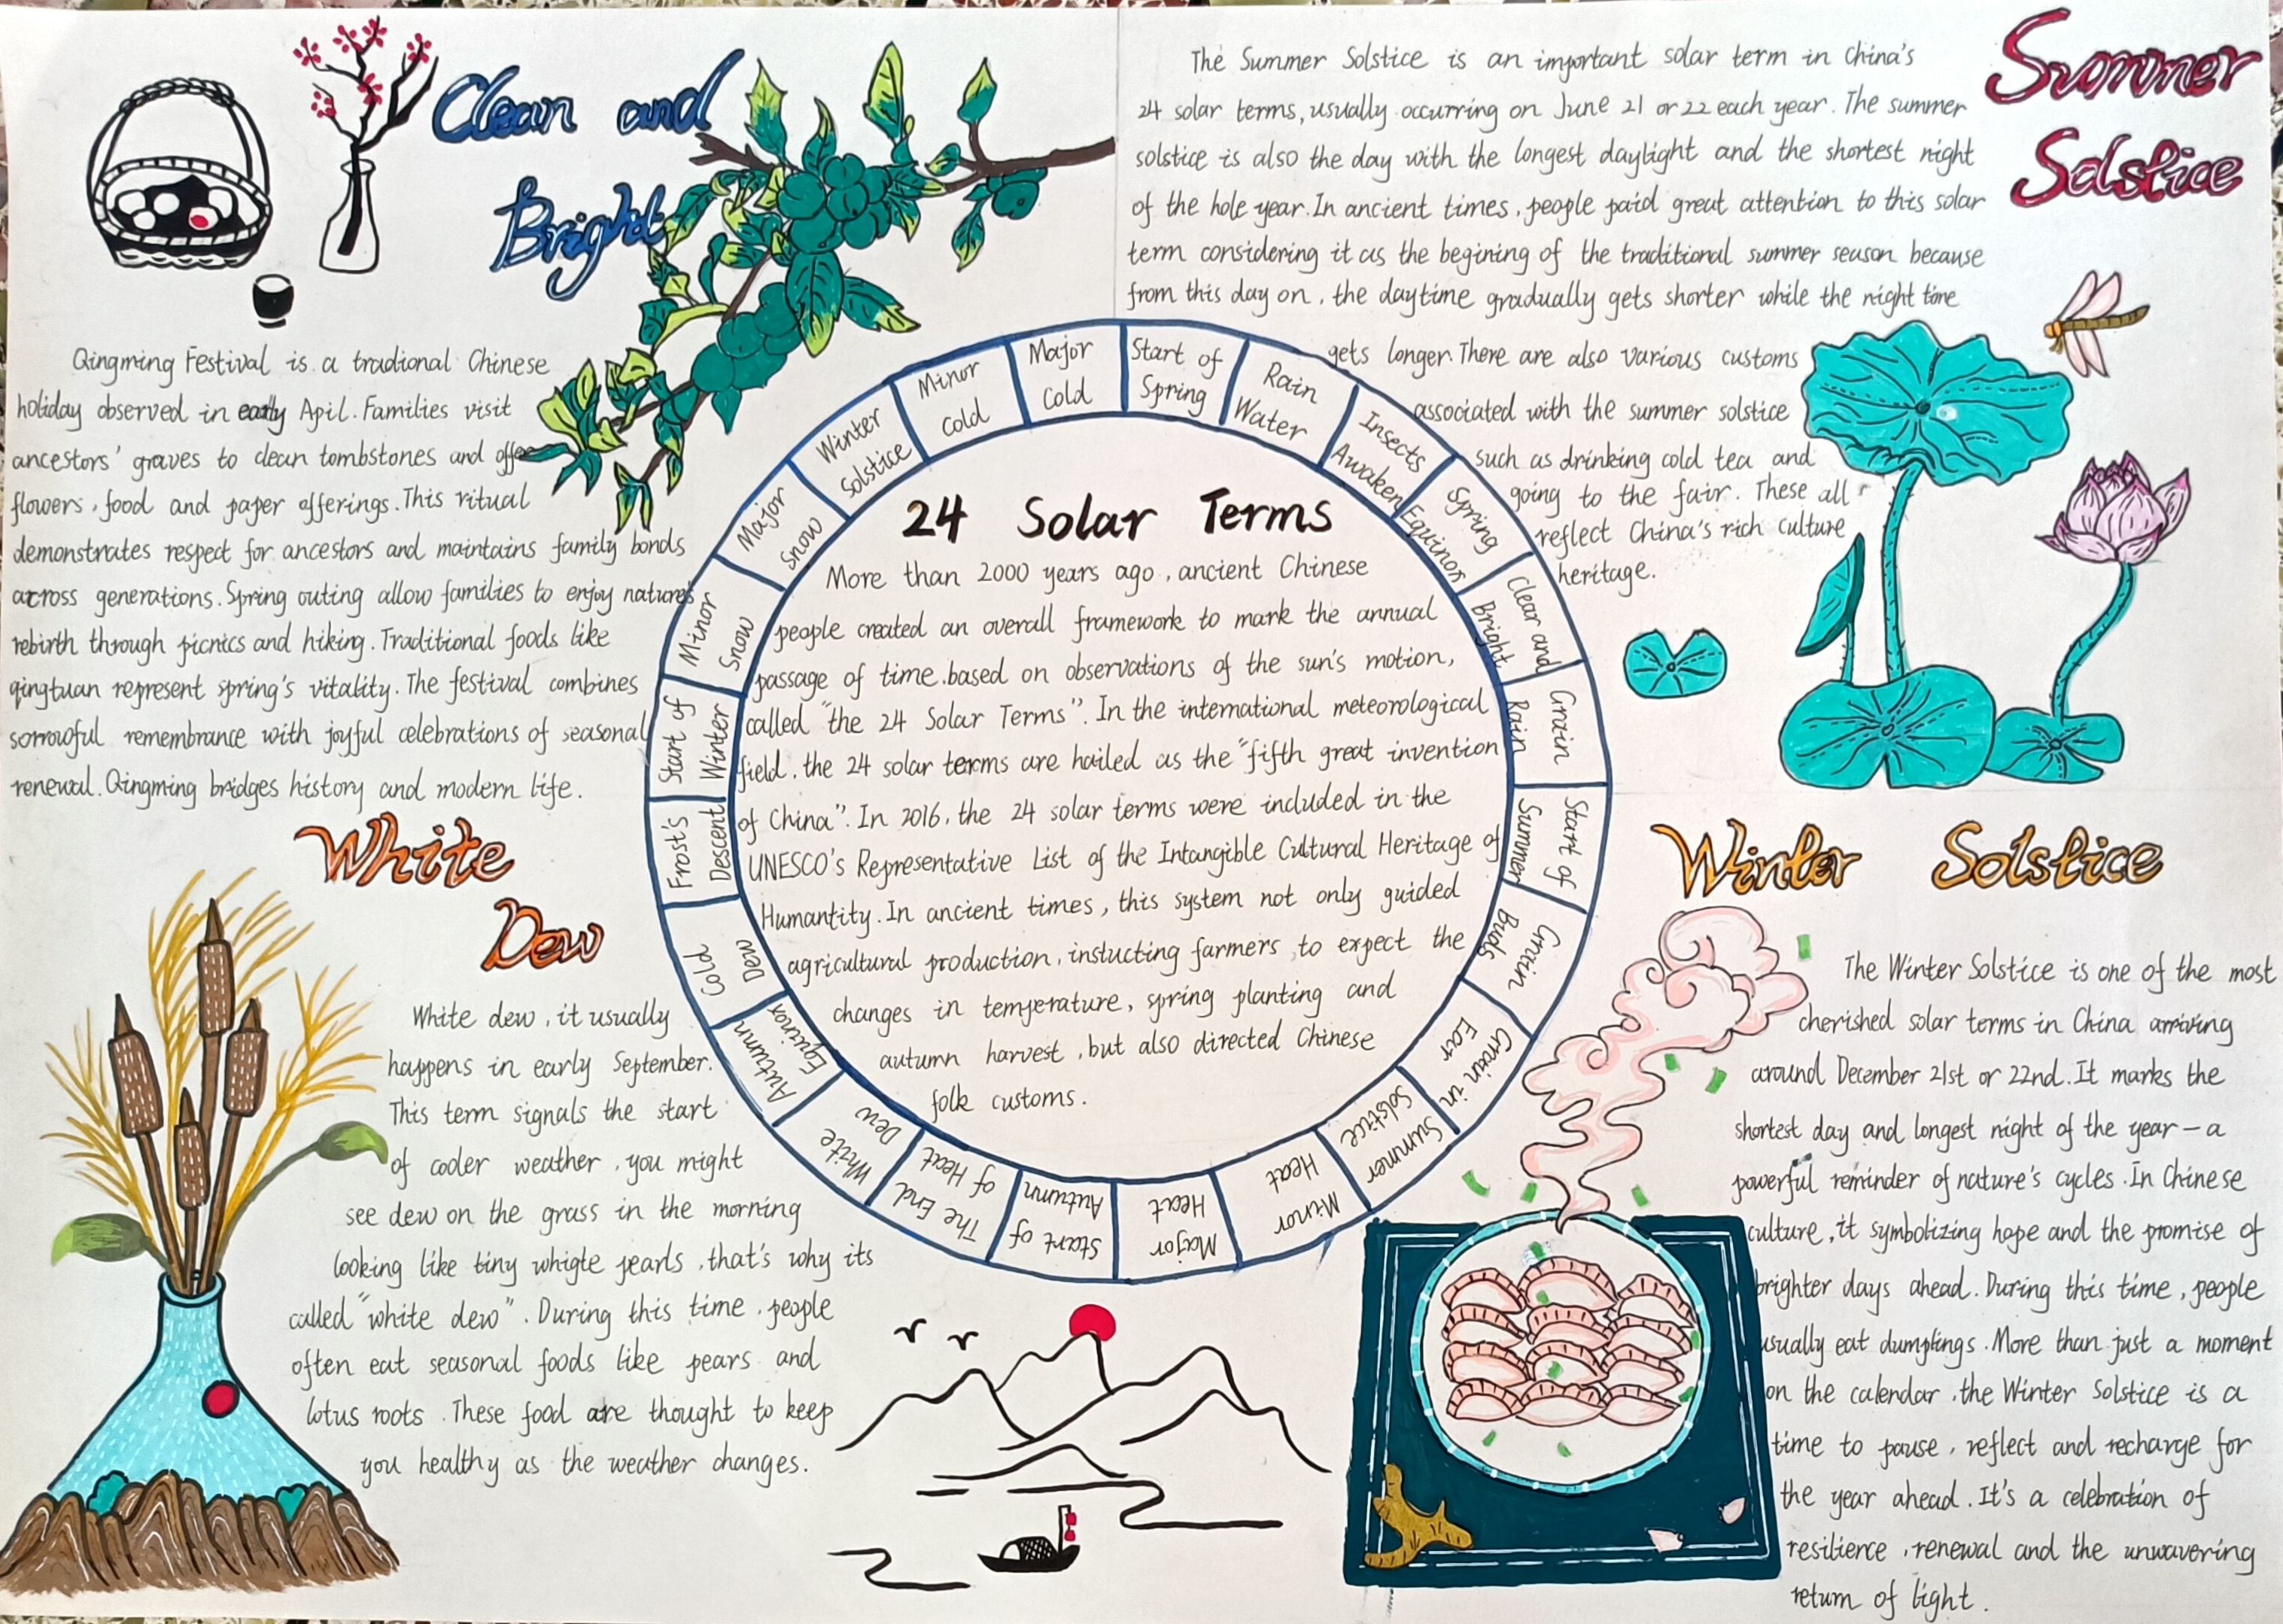 Clean and
Bright
Qingming Festival is a tradional Chinese
holiday observed in early Apil. Families visit
ancestors' graves to clean tombstones and offer
flowers, food and paper offerings. This ritual
demonstrates respect for ancestors and maintains family bonds
across generations. Spring outing allow families to enjoy nature's
rebirth through picnics and hiking. Traditional foods like
qingtuan represent spring's vitality. The festival combines
sorrowful remembrance with joyful celebrations of seasonal
renewal. Qingming bridges history and modern life.
Summer
Solstice
The Summer Solstice is an important solar term in China's
24 solar terms, usually occurring on June 21 or 22 each year. The summer
solstice is also the day with the longest daylight and the shortest night
of the hole year. In ancient times, people paid great attention to this solar
term considering it as the begining of the traditional summer season because
from this day on, the daytime gradually gets shorter while the night time
gets longer. There are also various customs
associated with the summer solstice
such as drinking cold tea and
going to the fair. These all
reflect China's rich culture
heritage.
Start of
Spring
Rain
Water
Insects
Awaken
Spring
Equinox
Clear and
Bright
Grain
Rain
Start of
Summer
Grain
Buds
Grain in
Ear
Summer
Solstice
Minor
Heat
Major
Heat
Start of
Autumn
The End
of Heat
White
Dew
Autumn
Equinox
Cold
Dew
Frost's
Descent
Start of
Winter
Minor
Snow
Major
Snow
Winter
Solstice
Minor
Cold
Major
Cold
24 Solar Terms
More than 2000 years ago, ancient Chinese
people created an overall framework to mark the annual
passage of time.based on observations of the sun's motion,
called "the 24 Solar Terms". In the international meteorological
field, the 24 solar terms are hailed as the "fifth great invention
of China". In 2016, the 24 solar terms were included in the
UNESCO's Representative List of the Intangible Cultural Heritage of
Humantity. In ancient times, this system not only guided
agricultural production, instucting farmers to expect the
changes in temperature, spring planting and
autumn harvest, but also directed Chinese
folk customs.
White
Dew
White dew, it usually
happens in early September.
This term signals the start
of cooler weather, you might
see dew on the grass in the morning
looking like tiny whigte pearls, that's why its
called "white dew". During this time, people
often eat seasonal foods like pears and
lotus roots. These food are thought to keep
you healthy as the weather changes.
Winter Solstice
The Winter Solstice is one of the most
cherished solar terms in China arriving
around December 21st or 22nd. It marks the
shortest day and longest night of the year - a
powerful reminder of nature's cycles. In Chinese
culture, it symbolizing hope and the promise of
brighter days ahead. During this time, people
usually eat dumplings. More than just a moment
on the calendar, the Winter Solstice is a
time to pause, reflect and recharge for
the year ahead. It's a celebration of
resilience, renewal and the unwavering
return of light.